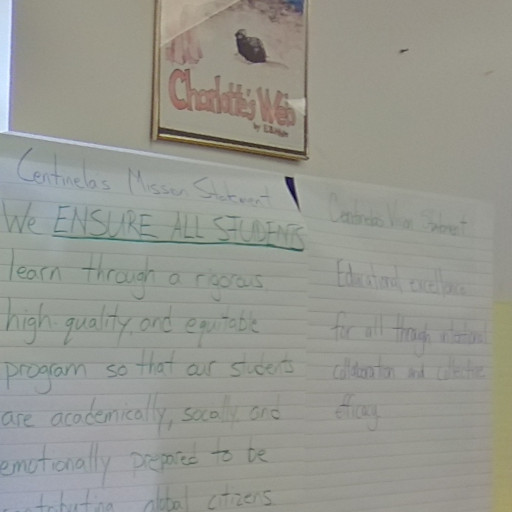 Charlotte's Web
by E.B. White
Centinelas Misson Statement
We ENSURE ALL STUDENTS
learn through a rigorous
high-quality, and equitable
program so that our students
are academically, socally, and
emotionally prepared to be
contributing global citizens
Educational excellence
for all through intentional
collaboration and collective
efficacy